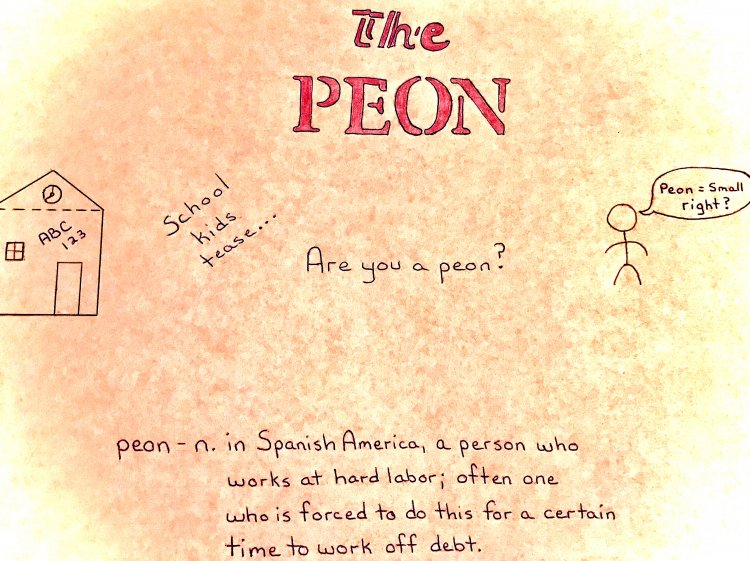 The
PEON
ABC
123
School
kids
tease...
Are you a peon?
Peon = Small
right?
peon - n. in Spanish America, a person who
works at hard labor; often one
who is forced to do this for a certain
time to work off debt.